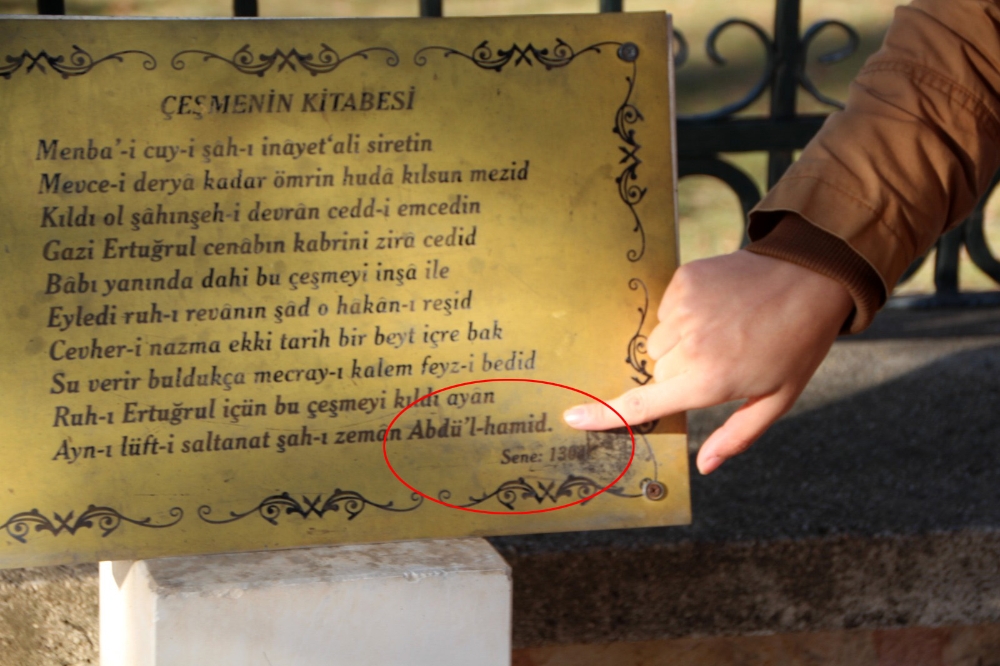 ÇEŞMENİN KİTABESİ
Menba'-i cuy-i şah-ı inâyet'ali siretin
Mevce-i deryâ kadar ömrin hudâ kılsun mezid
Kıldı ol şâhınşeh-i devrân cedd-i emcedin
Gazi Ertuğrul cenâbın kabrini zirâ cedid
Bâbı yanında dahi bu çeşmeyi inşâ ile
Eyledi ruh-ı revânın şâd o hâkân-ı reşid
Cevher-i nazma ekki tarih bir beyt içre bak
Su verir buldukça mecray-ı kalem feyz-i bedid
Ruh-ı Ertuğrul içün bu çeşmeyi kıldı ayân
Ayn-ı lüft-i saltanat şah-ı zeman Abdü'l-hamid.
Sene: